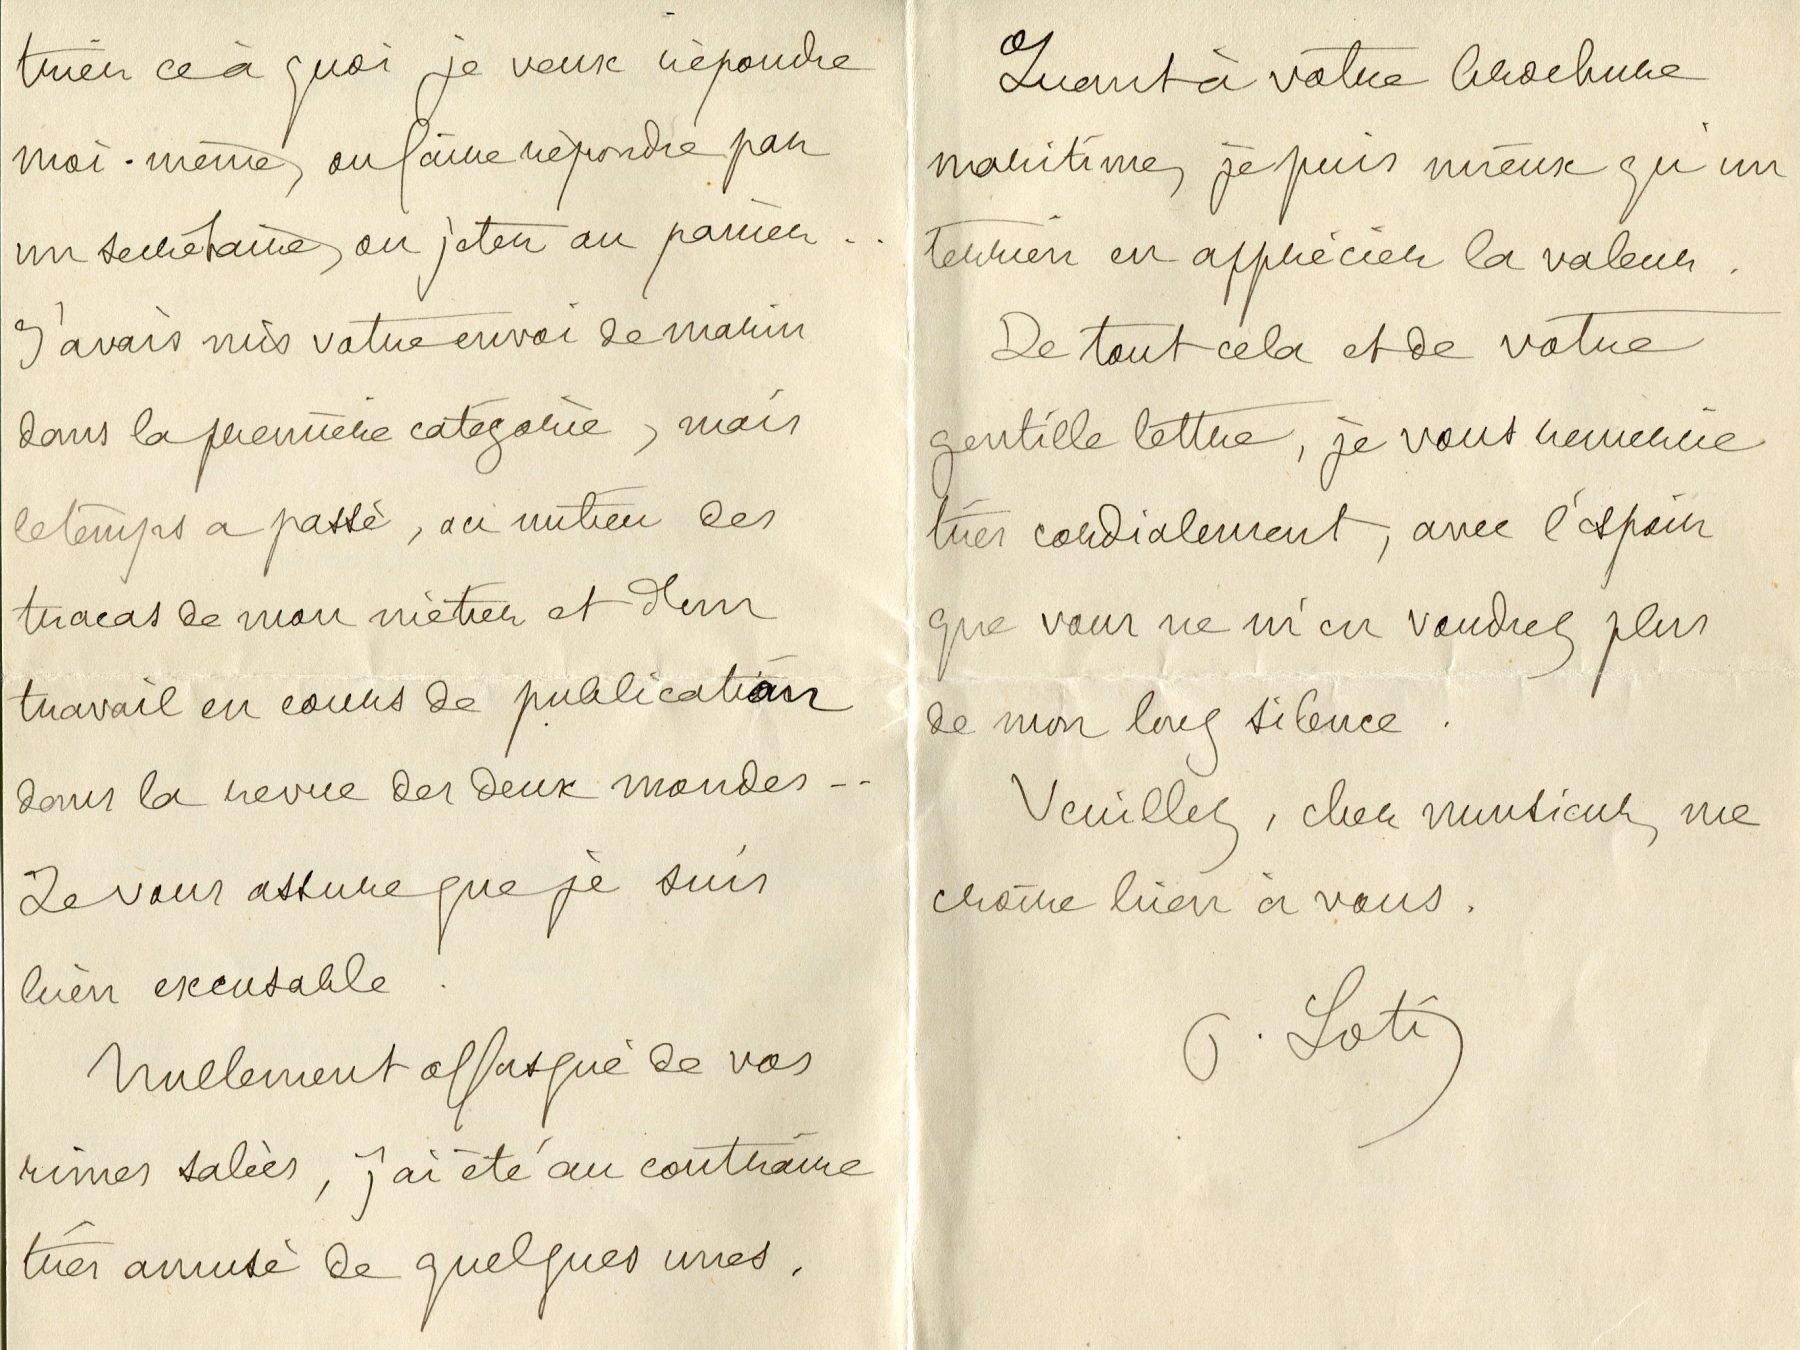 trier ce à quoi je veux répondre
moi-même, ou faire répondre par
un secrétaire, ou jeter au panier ..
J'avais mis votre envoi de marin
dans la première catégorie, mais
le temps a passé, au milieu des
tracas de mon métier et d'un
travail en cours de publication
dans la revue des deux mondes --
Je vous assure que je suis
bien excusable.
Nullement offusqué de vos
rimes salées, j'ai été au contraire
très amusé de quelques unes.
Quant à votre brochure
maritime, je puis mieux qu'un
terrien en apprécier la valeur.
De tout cela et de votre
gentille lettre, je vous remercie
très cordialement, avec l'espoir
que vous ne m'en voudrez plus
de mon long silence.
Veuillez, cher monsieur, me
croire bien à vous.
P. Loti